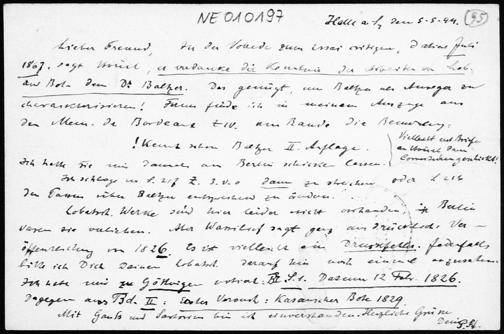 NE010197
Halle a/S, den 5-5-44. (95)
Lieber Freund, In der Vorrede zum essai critique, datiert Juli
1867. sagt Hoüel, er verdanke die Kenntnis der Arbeiten von Lob.
und Bolyai dem Dr Baltzer. Das genügt, um Baltzer als Anreger zu
charakterisieren! Ferner finde ich in meinem Auszuge aus
den Mem. de Bordeaux am Rande die Bemerkung
! Kennt schon Baltzer II. Auflage.
Vielleicht mit Briefe
an Hoüel dann
Ich hatte sie mir damals aus Berlin schicken lassen.
Ich schlage vor S. Z. 3. v. o dann zu streichen oder
den Passus über Baltzer entsprechend zu ändern.
Lobatsch. Werke sind hier leider nicht vorhanden, in Berlin
waren sie verliehen. Aber Wassilief sagt ganz ausdrücklich: Ver-
öffentlichung von 1826. Es ist vielleicht ein Druckfehler. Jedenfalls
bitte ich Dich Deinen Lobatsch. darauf hin noch einmal anzusehen.
Ich hatte mir zu Göttingen notiert: Bd. I S. 1. Datum 12 Febr. 1826.
Dagegen aus Bd. II: erster Versuch: Kasanscher Bote 1829.
Mit Gauß und Sartorius bin ich einverstanden. Herzliche Grüsse
Dein P. St.